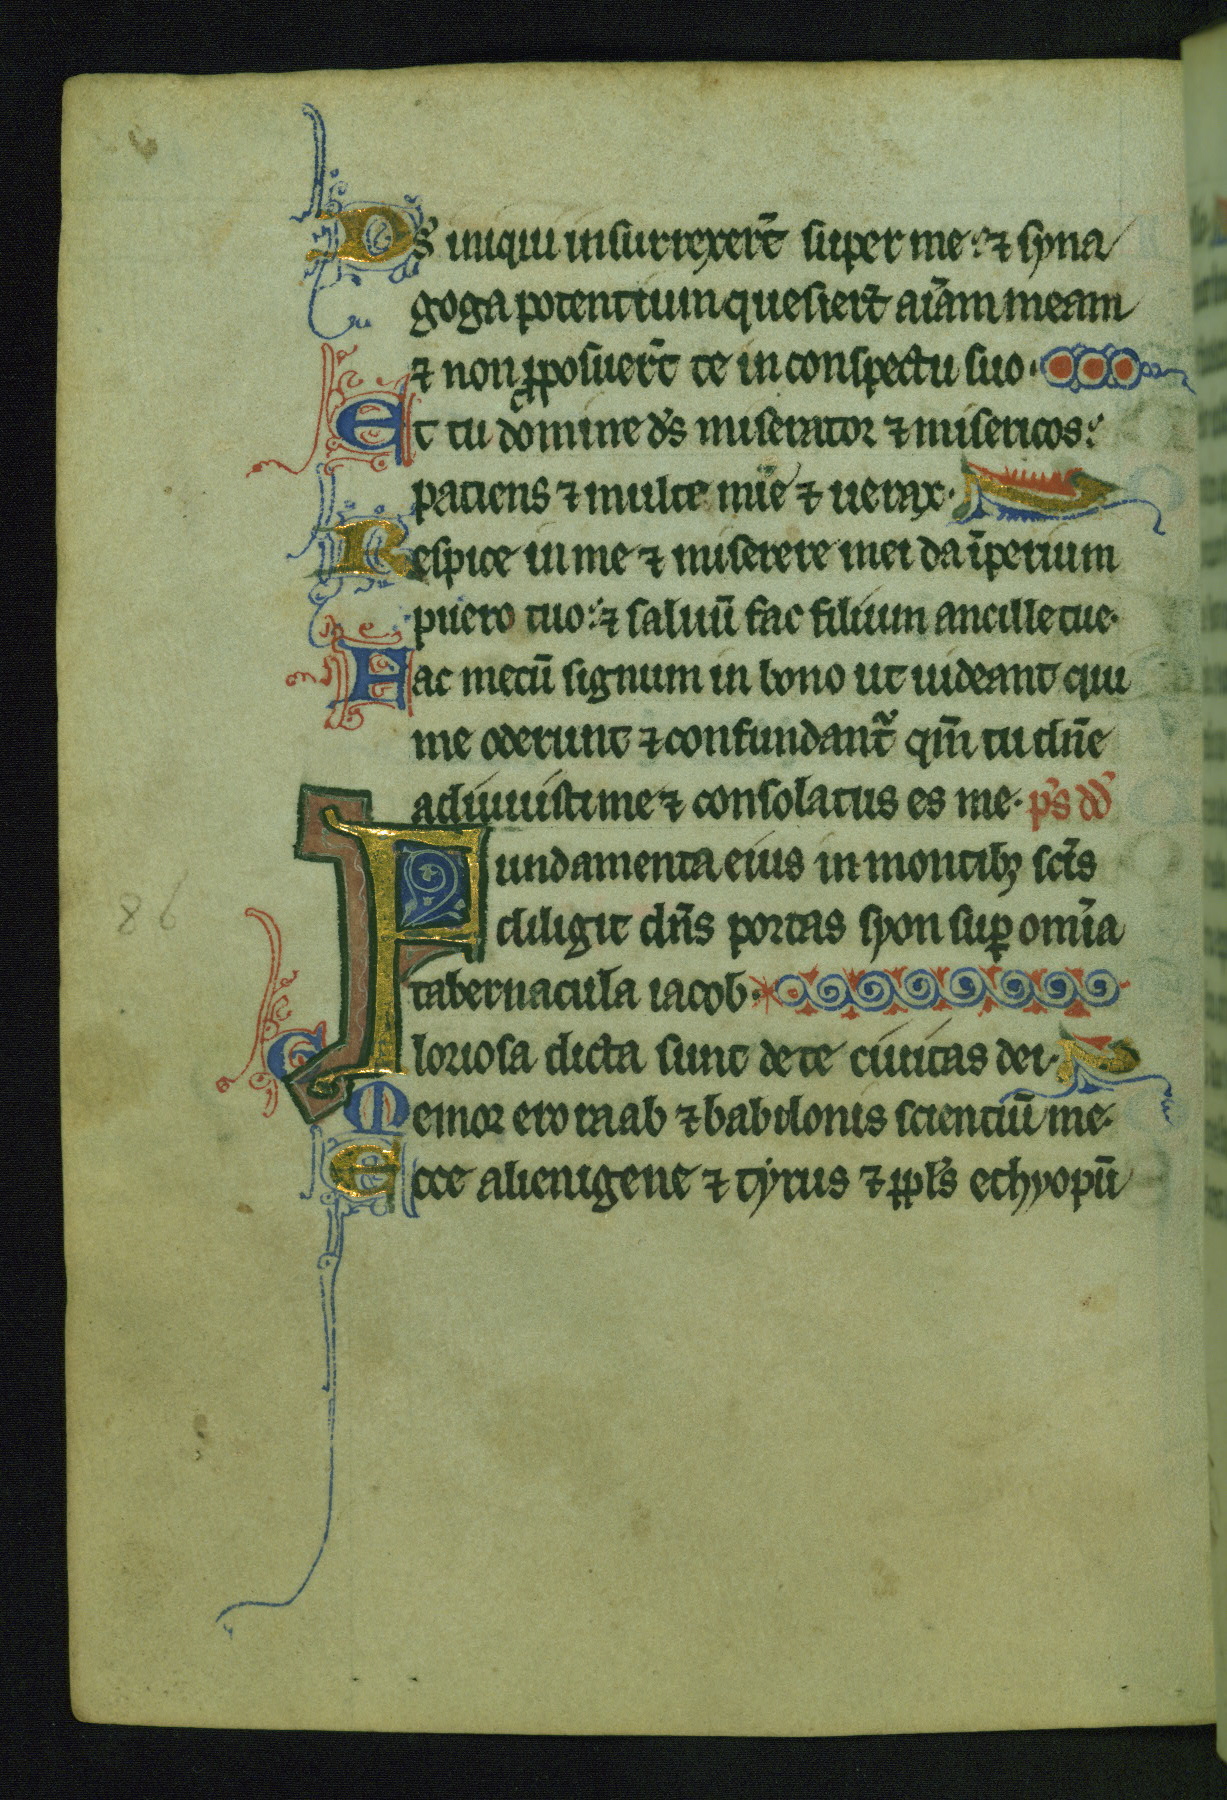 Ds̄ iniqui insurrexer̄t super me ⁊ syna
goga potentium quesier̄t aīam meam
⁊ non ꝓposuer̄t te in conspectu suo.
Et tu domine ds̄ miserator ⁊ misericos:
patiens ⁊ multe mīe ⁊ uerax.
Respice in me ⁊ miserere mei da īperium
puero tuo: ⁊ saluū fac filium ancille tue.
Fac mecū signum in bono ut uideant qui
me oderunt ⁊ confundant᷑ qm̄ tu dn̄e
adiuuisti me ⁊ consolatus es me. ps̄ dd̄
Fundamenta eius in montibꝫ sc̄is
diligit dn̄s portas syon suꝑ om̄ia
tabernacula iacob.
Gloriosa dicta sunt de te ciuitas dei.
Memor ero raab ⁊ babilonis scientiū me.
Ecce alienigene ⁊ tyrus ⁊ ppl̄s ethyopū
86